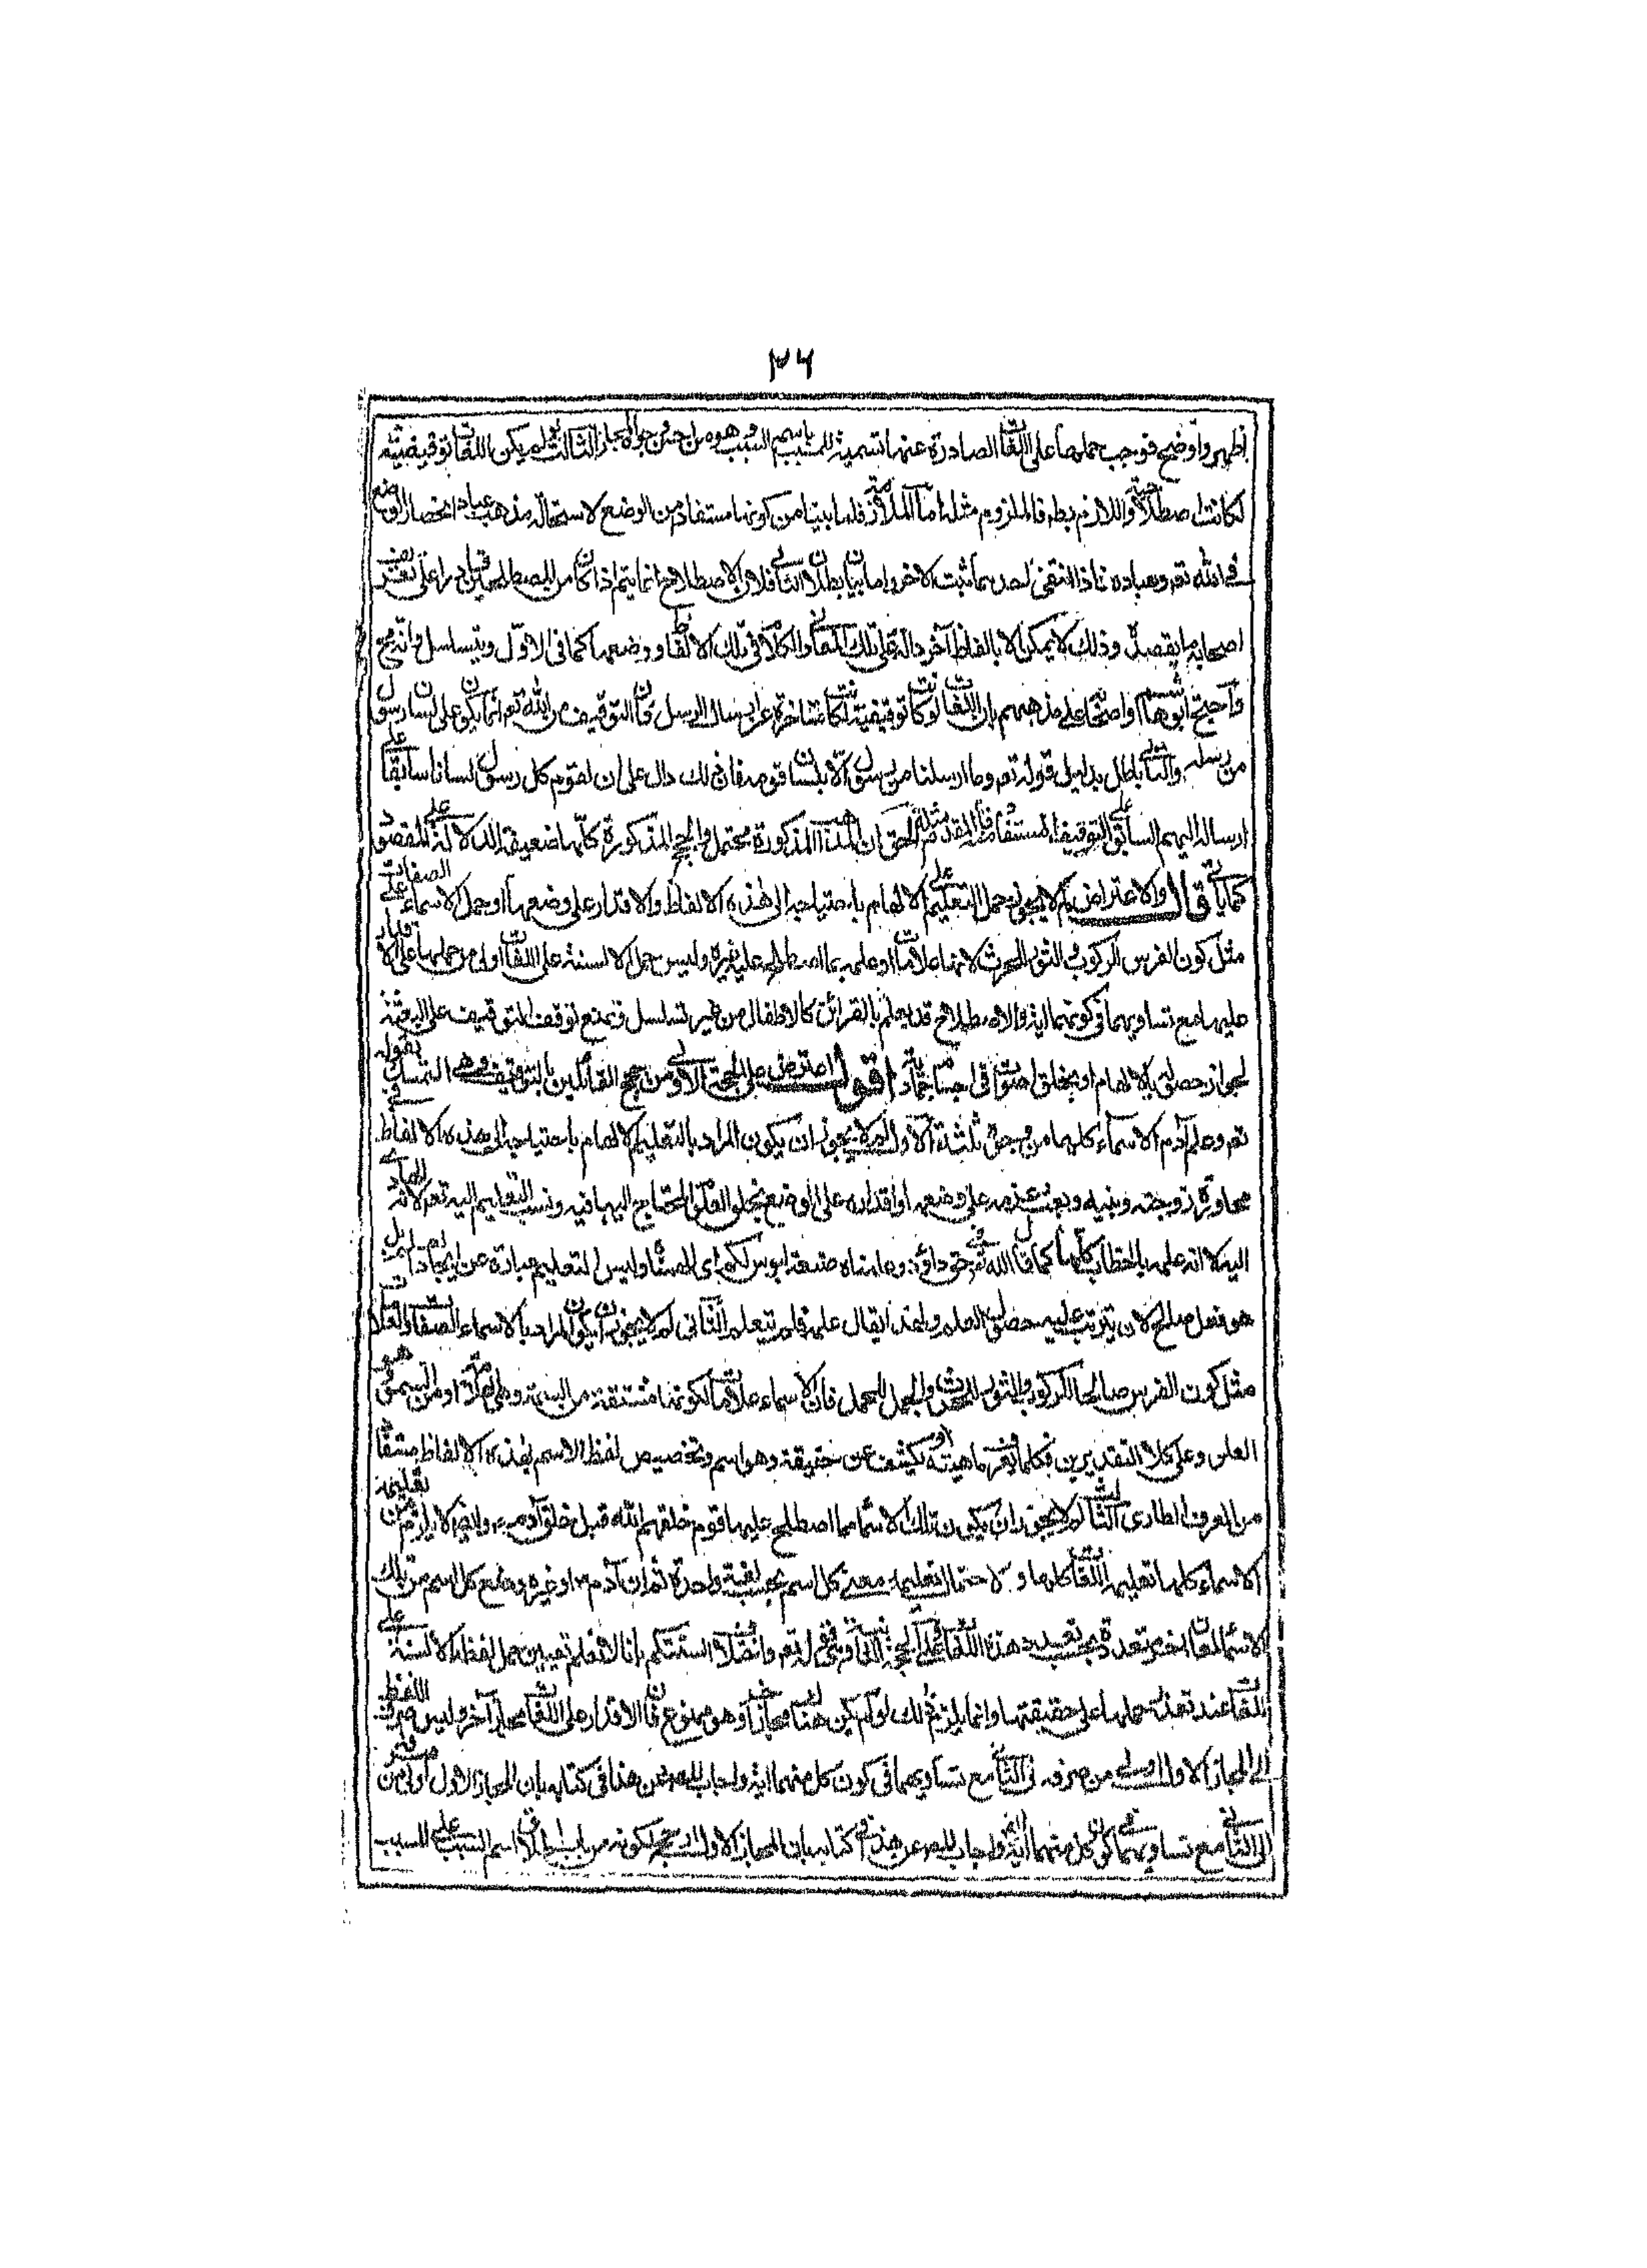 ٢٦
اظهر واوضح فوجب حملها على اللغات الصادرة عنها تسمية للمسبب باسم السبب وهو من احسن وجوه المجاز الثالث لو لم يكن اللغات توقيفية
لكانت اصطلاحية واللازم بط فالملزوم مثله اما الملازمة فلما بينا من كونها مستفادة من الوضع لاستحالة مذهب عباد انحصار الوضع
في الله تعم وعباده فاذا انتفى احدهما ثبت الاخر واما بيان بطلان الثاني فلان الاصطلاح انما يتم اذا كان من المصطلحين تعريف
اصحابه ما يقصده وذلك لا يمكن الا بالفاظ آخر دالة على تلك المعاني والكلام في تلك الالفاظ ووضعها كما في الاول ويتسلسل وانه مح
واحتج ابوهاشم واصحابه على مذهبهم بان اللغات لو كانت توقيفية لكانت متاخرة عن ارسال الرسل فان التوقيف من الله تعم انما يكون على لسان رسول
من رسله والثاني باطل بدليل قوله تعم وما ارسلنا من رسول الا بلسان قومه فان ذلك دال على ان لقوم كل رسول لسانا سابقا على
ارساله اليهم السابق على التوقيف المستفاد فالمقدم مثله والحق ان المذاهب المذكورة محتملة والحجج المذكورة كلها ضعيفة الدلالة على المقصود
كما ياتي قال والاعتراض لم لا يجوز حمل التعليم على الالهام باحتياجه الى هذه الالفاظ والاقدار على وضعها او حمل الاسماء على الصفات
مثل كون الفرس للركوب والثور للحرث لانها علامات او علمه بما اصطلح عليه غيره وليس حمل الالسنة على اللغات اولى من حملها على الاقدار
عليها مع تساويهما في كونهما اية والاصطلاح قد يعلم بالقرائن كالاطفال من غير تسلسل ونمنع توقف التوقيف على البعثة
لجواز حصوله بالالهام او بخلق اصوات في اجسام جمادية اقول اعترض على الحجة الاولى من حجج القائلين بالتوقيف وهي التمسك بقوله
تعم وعلم آدم الاسماء كلها من وجوه ثلثة الاول لم لا يجوز ان يكون المراد بالتعليم الالهام باحتياجه الى هذه الالفاظ في
محاورة زوجته وبنيه وبعث عزمه على وضعها او اقداره على الوضع بخلق العلوم المحتاج اليها فيه ونسب التعليم اليه تعم لانه الهادي
اليه لا انه علمه بالخطاب كلها كما قال الله تعم في حق داؤد وعلمناه صنعة لبوس لكم اي الهمناه وليس التعليم عبارة عن ايجاد العلم بل
هو فعل صالح لان يترتب عليه حصول العلم ولهذا يقال علمته فلم يتعلم الثاني لم لا يجوز ان يكون المراد بالاسماء الصفات والعلامات
مثل كون الفرس صالحا للركوب والثور للحرث والجمل للحمل فان الاسماء علامات لكونها مشتقة من السمة وهي العلامة او من السمو وهو
العلو وعلى كلا التقديرين فكلما يعرف ماهيته او يكشف عن حقيقته وهو اسم وتخصيص لفظ الاسم بهذه الالفاظ مستفاد
من العرف الطاري الثالث لم لا يجوز ان يكون تلك الاسماء مما اصطلح عليها قوم خلقهم الله قبل خلق آدم وايضا لا يلزم من تعليمه
الاسماء كلها تعليم اللغات كلها و لاحتمال تعليمه معنى كل اسم بحسب لغة واحدة ثم ان آدم او غيره وضع كل اسم من تلك
الاسماء لمعان اخر متعددة بحسب تعدد هذه اللغات على الحجة الثانية وهي قوله تعم واختلاف السنتكم بانا لا نعلم تعيين حمل لفظ الالسنة على
اللغات عند تعذر حملها على حقيقتها وانما يلزم ذلك لو لم يكن هنا مجاز آخر وهو ممنوع فان الاقدار على اللغات مجاز آخر وليس صرف اللفظ
الى المجاز الاول اولى من صرفه الى الثاني مع تساويهما في كون كل منهما اية واجاب المصنف عن هذا في كتابه بان المجاز الاول اولى من
الى الثاني مع تساويهما في كون كل منهما اية واجاب المصنف عن هذا في كتابه بان المجاز الاول ارجح لكونه من باب اطلاق اسم السبب على المسبب